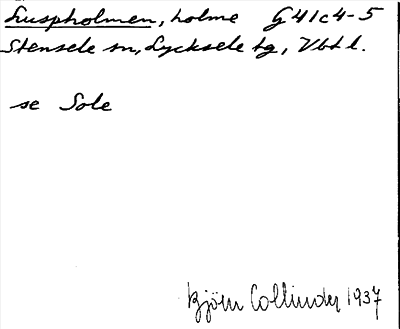 Luspholmen, holme G41c4-5
Stensele sn, Lycksele tg, Vbtl.
se Sole
Björn Collinder 1937